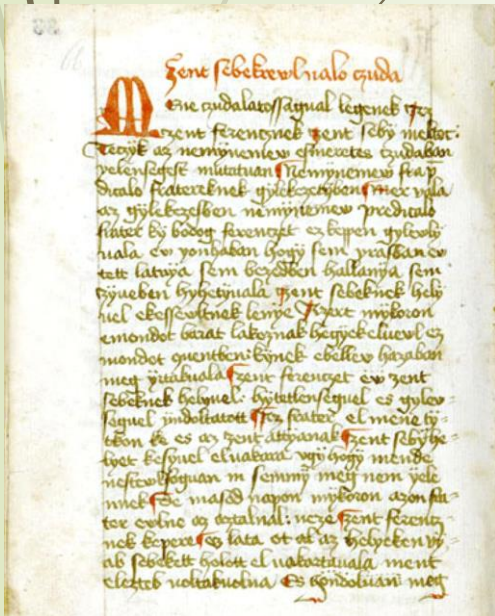 zent sebekrewl ualo czuda
Mene czudalatossagual legenek ez
zent ferencznek zent seby meltot:
Teczyk az nemynemew esmeretes czudaban
yelensegest mutatuan Nemynemew frap
dicalo fratereknek gylekezetyben mert vala
az gylekezesben nemynemew predicalo
frater ky bodog ferenczet ezkepen gylewly
uala ew yonhaban hogy sem yrasban ew
tett latuya sem bezedben hallanya sem
zyueben hyhetyuala zent sebeknek hely
uel ekesseltnek lennye Azert mykoron
emendot barat lakoznak hegyekeluewl ez
mondot quentben: kynek ebellew hazaban
meg yrtakuala zent ferenczet ew zent
sebeknek helyuel: hytetlenseguel es gylew
seguel yndoltatott ez frater el mene ty
tkon ke es az zent attyanak zent sebyhe
lyet kesyuel el uakara ugy hogy mende
nestewlfoguan in semmy meg nem yele
nnek De masod napon mykoron azon fra
ter ewlne az aztalnal: neze zent ferencz
nek kepere es lata ot at az helyeken vy
ab sebekett holott el uakartauala ment
elezteb uoltakuolna Es gondoluan meg